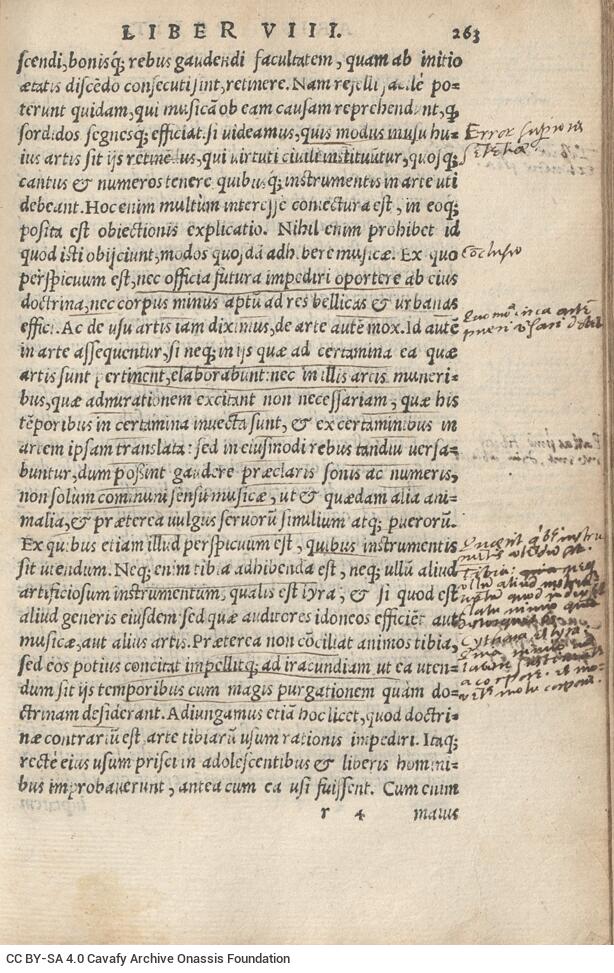 LIBER VIII. 263
scendi, bonisq́; rebus gaudendi facultatem, quam ab initio
ætatis discẽdo consecuti sint, retinere. Nam refelli facilè po-
terunt quidam, qui musicã ob eam causam reprehendunt, ꝙ
sordidos segnesq; efficiat. si uideamus, quis modus in usu hu-
ius artis sit ijs retinendus, qui uirtuti ciuili instituuntur, quosq́;
cantus & numeros tenere quibusq́; instrumentis in arte uti
debeant. Hoc enim multùm interesse coniectura est, in eoq́;
posita est obiectionis explicatio. Nihil enim prohibet id
quod isti obijciunt, modos quosdã adhibere musicæ. Ex quo
perspicuum est, nec officia futura impediri oportere ab eius
doctrina, nec corpus minus aptũ ad res bellicas & urbanas
effici. Ac de usu artis iam diximus, de arte autẽ mox. Id autẽ
in arte assequentur, si neq; in ijs quæ ad certamina ea quæ
artis sunt pertinent, elaborabunt: nec in illis artis muneri-
bus, quæ admirationem excitant non necessariam, quæ his
tẽporibus in certamina inuecta sunt, & ex certaminibus in
artem ipsam translata: sed in eiusmodi rebus tandiu uersa-
buntur, dum possint gaudere præclaris sonis ac numeris,
non solùm communi sensu musicæ, ut & quædam alia ani-
malia, & præterea uulgus seruorũ similium atq; puerorũ.
Ex quibus etiam illud perspicuum est, quibus instrumentis
sit utendum. Neq; enim tibia adhibenda est, neq; ullũ aliud
artificiosum instrumentum, qualis est lyra, & si quod est
aliud generis eiusdem: sed quæ auditores idoneos efficiẽt aut
musicæ, aut alius artis. Præterea non cõciliat animos tibia,
sed eos potius concitat impellitq́; ad iracundiam ut ea uten-
dum sit ijs temporibus cum magis purgationem quàm do-
ctrinam desiderant. Adiungamus etiã hoc licet, quod doctri-
næ contrariũ est, arte tibiarũ usum rationis impediri. Itaq́;
rectè eius usum prisci in adolescentibus & liberis homini-
bus improbauerunt, antea cum ea usi fuissent. Cum enim
r 4 maius
Error
CC BY-SA 4.0 Cavafy Archive Onassis Foundation